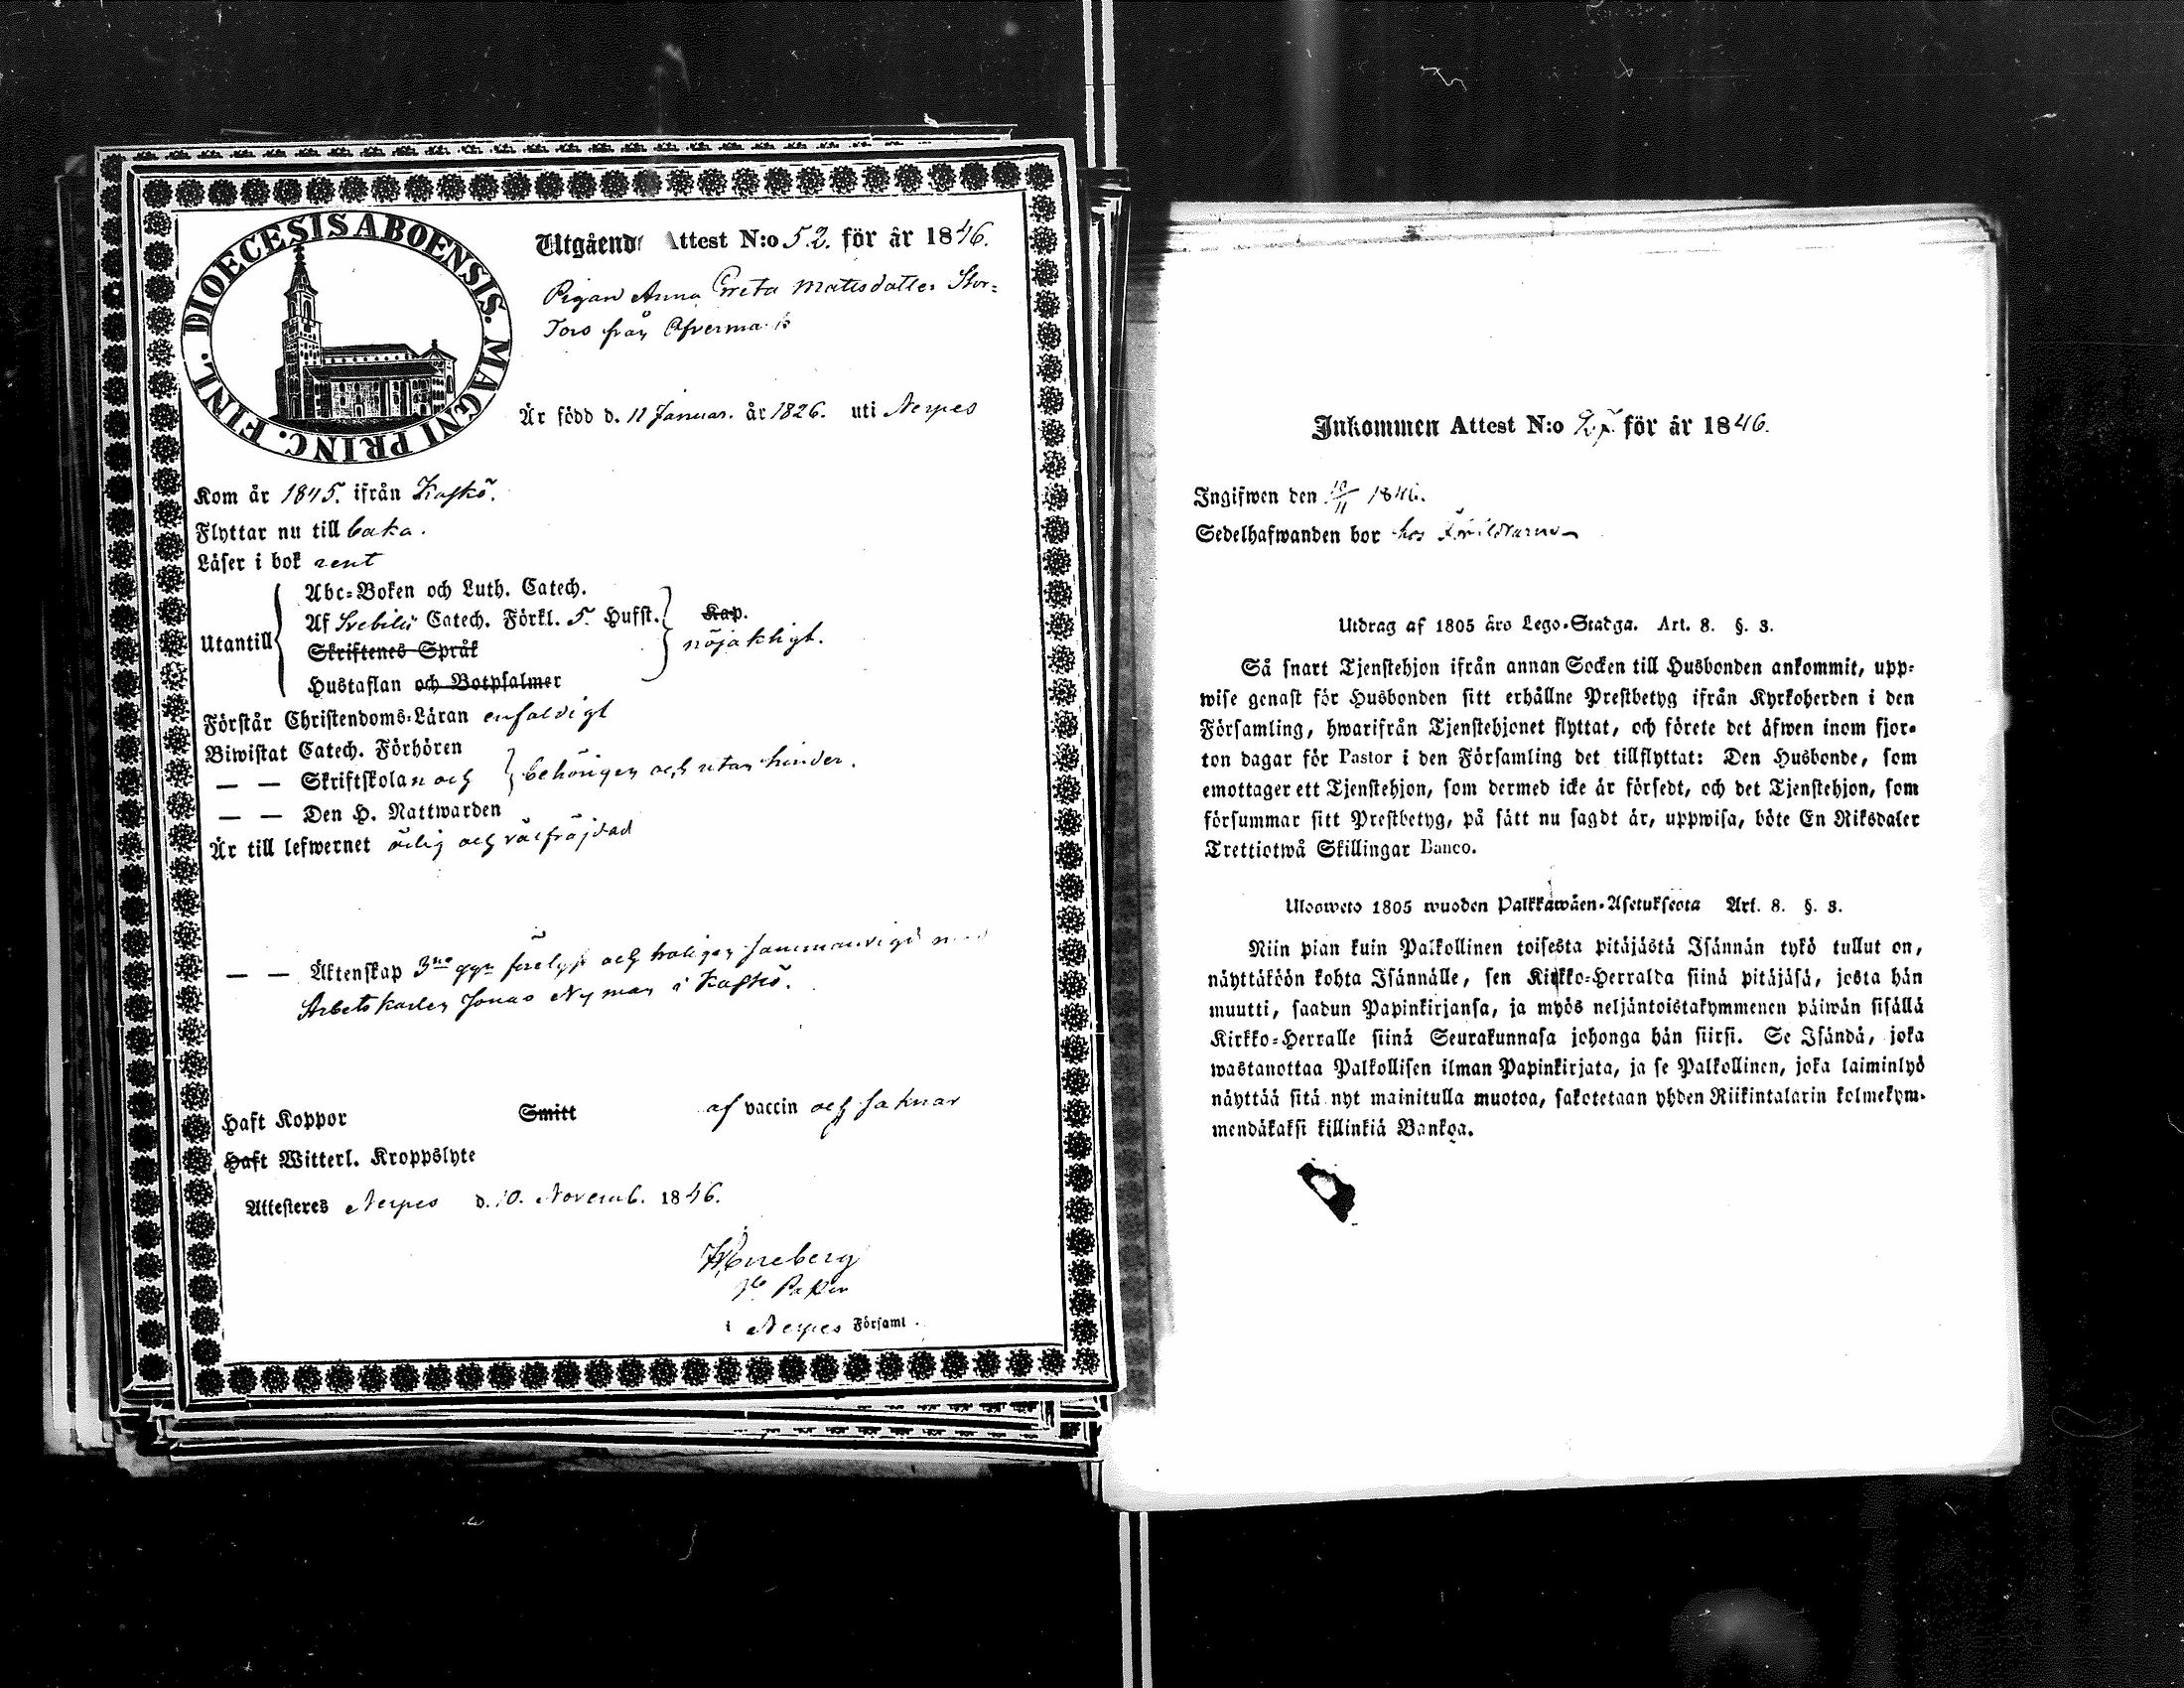 DIOECESIS ABOENSIS. MAGNI PRINC. FINL.
Utgående Attest N:o 52. för år 1846.
Pigan Anna Greta Mattsdotter Stor-
Toro från Öfvermark
Är född d. 11 Januar. år 1826. uti Nerpes
Kom år 1845. ifrån Kaskö.
Flyttar nu till baka.
Läser i bok rent
Utantill
Abc-Boken och Luth. Catech.
Af Svebilii Catech. Förkl. 5. Hufst.
Skriftenes Språk
Hustaflan och Botpsalmer
Kap.
nöjaktligt.
Förstår Christendoms-Läran enfaldigt
Biwistat Catech. Förhören
— — Skriftskolan och
behörigen och utan hinder.
— — Den H. Nattwarden
Är till lefwernet ärlig och välfräjdad
— — Äktenskap 3ne ggr förelyst och troligen sammanvigd med
Arbetskarlen Jonas Nyman i Kaskö.
Haft Koppor Smitt af vaccin och saknar
Haft Witterl. Kroppslyte
Attesteres Nerpes d. 10. Novemb. 1846.
i Nerpes Församl.
Inkommen Attest N:o för år 1846.
Ingifwen den 1846.
Sedelhafwanden bor hos Föräldrarne
Utdrag af 1805 års Lego-Stadga. Art. 8. §. 3.
Så snart Tjenstehjon ifrån annan Socken till Husbonden ankommit, upp-
wise genast för Husbonden sitt erhållne Prestbetyg ifrån Kyrkoherden i den
Församling, hwarifrån Tjenstehjonet flyttat, och förete det äfwen inom fjor-
ton dagar för Pastor i den Församling det tillflyttat: Den Husbonde, som
emottager ett Tjenstehjon, som dermed icke är försedt, och det Tjenstehjon, som
försummar sitt Prestbetyg, på sätt nu sagdt är, uppwisa, böte En Riksdaler
Trettiotwå Skillingar Banco.
Ulosweto 1805 wuoden Palkkawäen-Asetuksesta Art. 8. §. 3.
Niin pian kuin Palkollinen toisesta pitäjästä Isännän tykö tullut on,
näyttäköön kohta Isännälle, sen Kirkko-Herralda siinä pitäjäsä, josta hän
muutti, saadun Papinkirjansa, ja myös neljäntoistakymmenen päiwän sisällä
Kirkko-Herralle siinä Seurakunnasa johonga hän siirsi. Se Isändä, joka
wastanottaa Palkollisen ilman Papinkirjata, ja se Palkollinen, joka laiminlyö
näyttää sitä nyt mainitulla muotoa, sakotetaan yhden Riikintalarin kolmekym-
mendäkaksi killinkiä Bankoa.